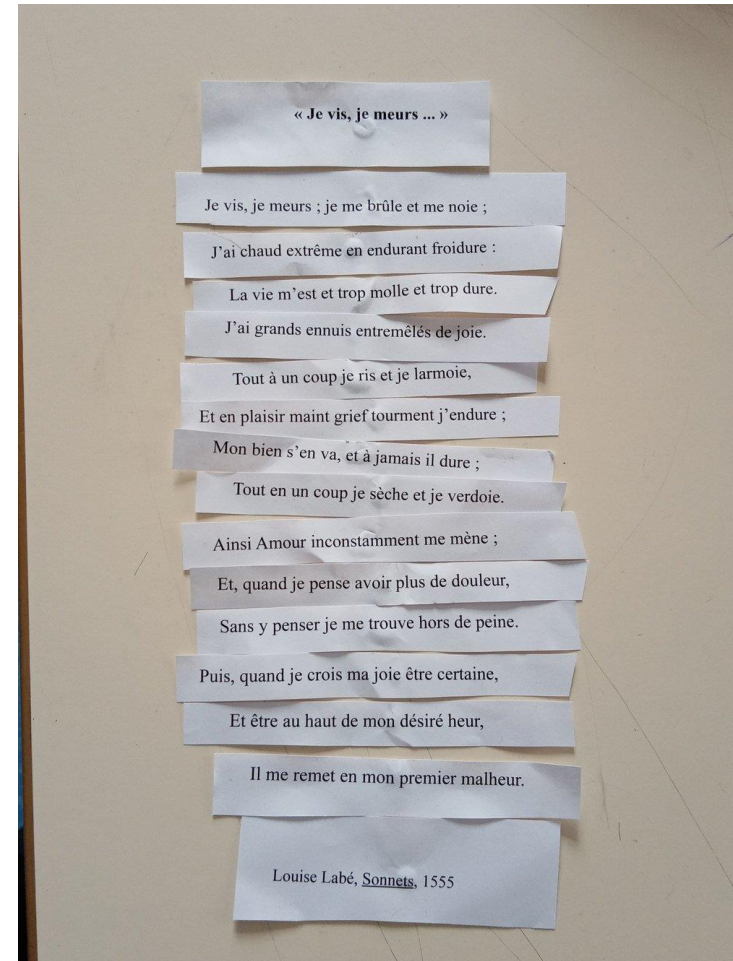 « Je vis, je meurs ... »
Je vis, je meurs ; je me brûle et me noie ;
J’ai chaud extrême en endurant froidure :
La vie m’est et trop molle et trop dure.
J’ai grands ennuis entremêlés de joie.
Tout à un coup je ris et je larmoie,
Et en plaisir maint grief tourment j’endure ;
Mon bien s’en va, et à jamais il dure ;
Tout en un coup je sèche et je verdoie.
Ainsi Amour inconstamment me mène ;
Et, quand je pense avoir plus de douleur,
Sans y penser je me trouve hors de peine.
Puis, quand je crois ma joie être certaine,
Et être au haut de mon désiré heur,
Il me remet en mon premier malheur.
Louise Labé, Sonnets, 1555